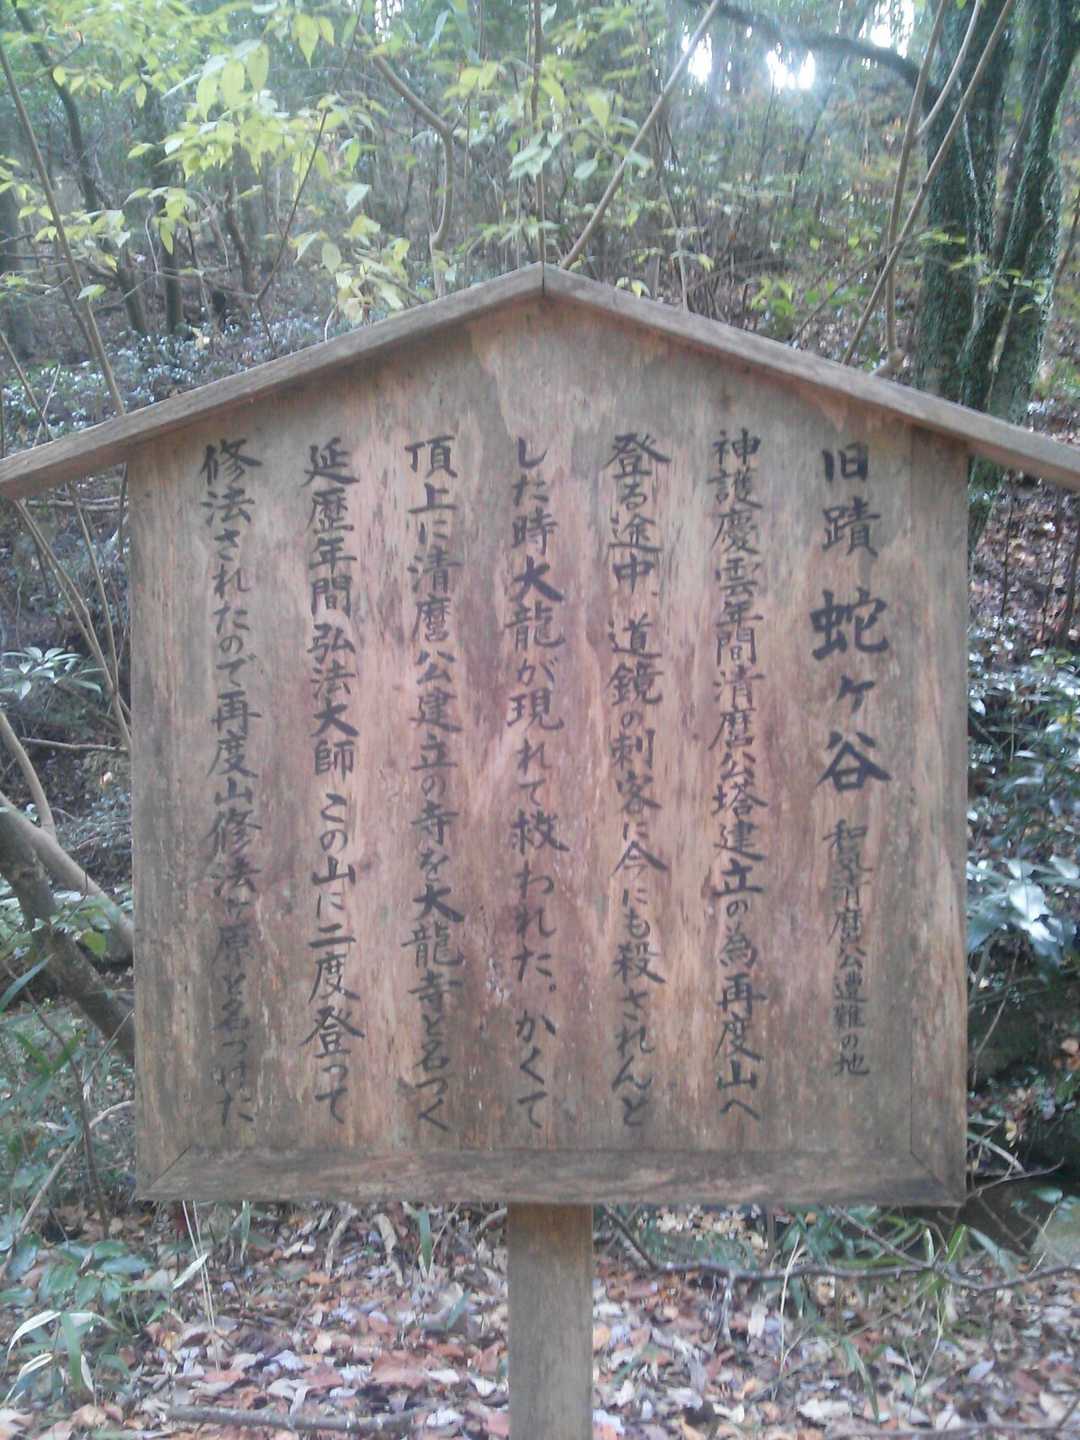 旧蹟 蛇ヶ谷 和気清麿公遭難の地
神護慶雲年間清麿公塔建立の為再度山へ
登る途中 道鏡の刺客に今にも殺されんと
した時大龍が現れて救われた。かくて
頂上に清麿公建立の寺を大龍寺と名つく
延歴年間 弘法大師 この山に二度登って
修法されたので再度山修法ヶ原と名つけた